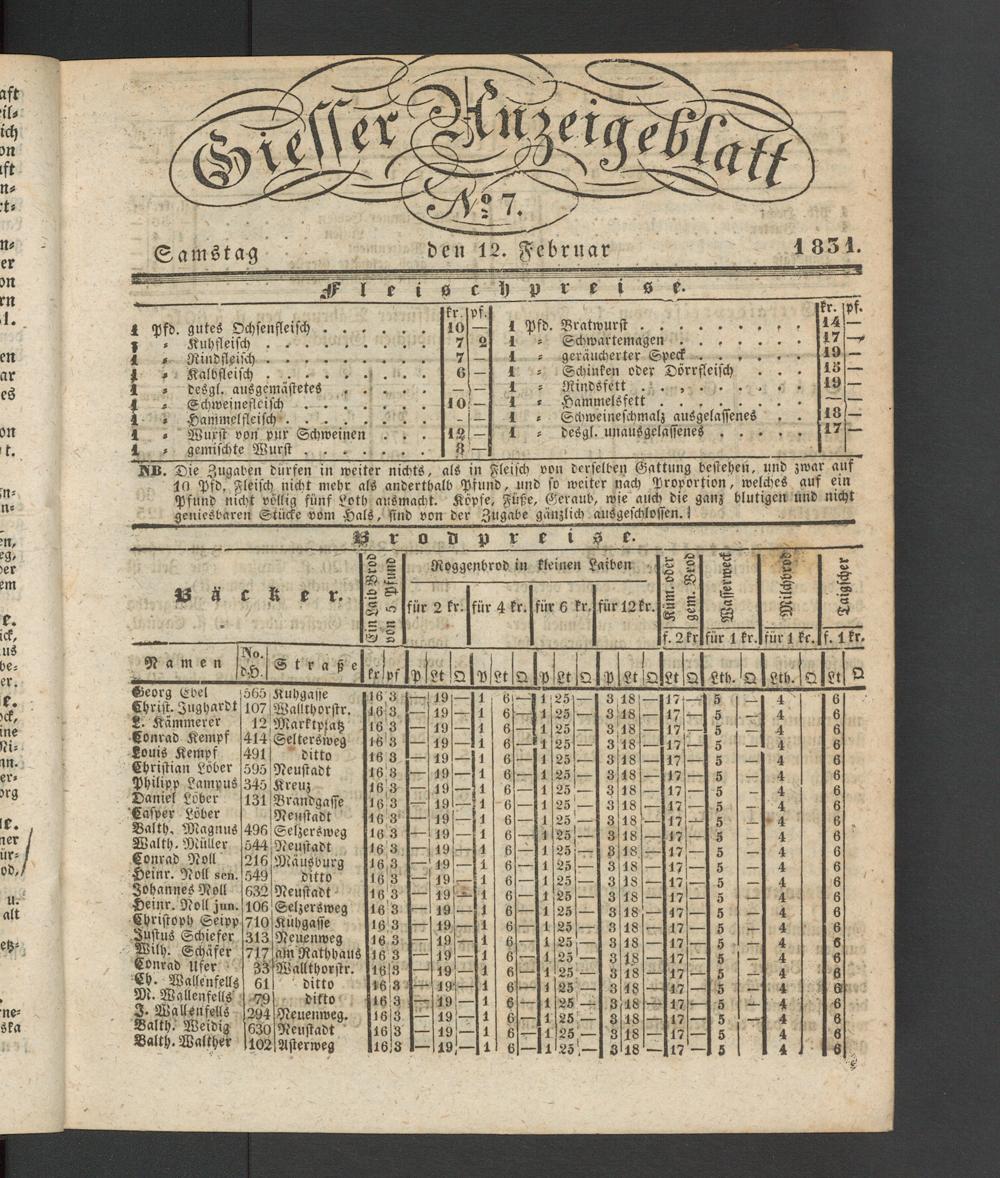 Giesser Anzeigeblatt
No 7.
Samstag den 12. Februar 1831.
Fleischpreise.
kr. pf.
1 Pfd. gutes Ochsenfleisch . . . . . . 10 —
1 „ Kuhfleisch . . . . . . . . 7 2
1 „ Rindfleisch . . . . . . . . 7 —
1 „ Kalbfleisch . . . . . . . . 6 —
1 „ desgl. ausgemästetes . . . . . — —
1 „ Schweinefleisch . . . . . . . 10 —
1 „ Hammelfleisch . . . . . . .
1 „ Wurst von pur Schweinen . . . 12 —
1 „ gemischte Wurst . . . . . . 8 —
kr. pf.
1 Pfd. Bratwurst . . . . . . . . . 14 —
1 „ Schwartemagen . . . . . . . 17 —
1 „ geräucherter Speck . . . . . . 19 —
1 „ Schinken oder Dörrfleisch . . . . 15 —
1 „ Rindsfett . . . . . . . . 19 —
1 „ Hammelsfett . . . . . . . — —
1 „ Schweineschmalz ausgelassenes . . . 18 —
1 „ desgl. unausgelassenes . . . . . 17 —
NB. Die Zugaben dürfen in weiter nichts, als in Fleisch von derselben Gattung bestehen, und zwar auf
10 Pfd. Fleisch nicht mehr als anderthalb Pfund, und so weiter nach Proportion, welches auf ein
Pfund nicht völlig fünf Loth ausmacht. Köpfe, Füße, Geraub, wie auch die ganz blutigen und nicht
geniesbaren Stücke vom Hals, sind von der Zugabe gänzlich ausgeschlossen.
Brodpreise.
Bäcker.
Ein Laib Brod von 5 Pfund
Roggenbrod in kleinen Laiben
für 2 kr. für 4 kr. für 6 kr. für 12 kr.
Küm. oder gem. Brod f. 2 kr
Wasserweck für 1 kr.
Milchbrod für 1 kr.
Taigscher f. 1 kr.
Namen No. d.H. Straße kr pf P Lt Q P Lt Q P Lt Q P Lt Q Lt Q Lth. Q Lth. Q Lt Q
Georg Ebel 565 Kuhgasse 16 3 — 19 — 1 6 — 1 25 — 3 18 — 17 — 5 — 4 6
Christ. Jughardt 107 Wallthorstr. 16 3 — 19 — 1 6 — 1 25 — 3 18 — 17 — 5 — 4 6
L. Kämmerer 12 Marktplatz 16 3 — 19 — 1 6 — 1 25 — 3 18 — 17 — 5 — 4 6
Conrad Kempf 414 Seltersweg 16 3 — 19 — 1 6 — 1 25 — 3 18 — 17 — 5 — 4 6
Louis Kempf 491 ditto 16 3 — 19 — 1 6 — 1 25 — 3 18 — 17 — 5 — 4 6
Christian Löber 595 Neustadt 16 3 — 19 — 1 6 — 1 25 — 3 18 — 17 — 5 — 4 6
Philipp Lampus 345 Kreuz 16 3 — 19 — 1 6 — 1 25 — 3 18 — 17 — 5 — 4 6
Daniel Löber 131 Brandgasse 16 3 — 19 — 1 6 — 1 25 — 3 18 — 17 — 5 — 4 6
Casper Löber Neustadt 16 3 — 19 — 1 6 — 1 25 — 3 18 — 17 — 5 — 4 6
Balth. Magnus 496 Selzersweg 16 3 — 19 — 1 6 — 1 25 — 3 18 — 17 — 5 — 4 6
Walth. Müller 544 Neustadt 16 3 — 19 — 1 6 — 1 25 — 3 18 — 17 — 5 — 4 6
Conrad Noll 216 Mäusburg 16 3 — 19 — 1 6 — 1 25 — 3 18 — 17 — 5 — 4 6
Heinr. Noll sen. 549 ditto 16 3 — 19 — 1 6 — 1 25 — 3 18 — 17 — 5 — 4 6
Johannes Noll 632 Neustadt 16 3 — 19 — 1 6 — 1 25 — 3 18 — 17 — 5 — 4 6
Heinr. Noll jun. 106 Selzersweg 16 3 — 19 — 1 6 — 1 25 — 3 18 — 17 — 5 — 4 6
Christoph Seipp 710 Kuhgasse 16 3 — 19 — 1 6 — 1 25 — 3 18 — 17 — 5 — 4 6
Justus Schiefer 313 Neuenweg 16 3 — 19 — 1 6 — 1 25 — 3 18 — 17 — 5 — 4 6
Wilh. Schäfer 717 am Rathhaus 16 3 — 19 — 1 6 — 1 25 — 3 18 — 17 — 5 — 4 6
Conrad Ufer 33 Wallthorstr. 16 3 — 19 — 1 6 — 1 25 — 3 18 — 17 — 5 — 4 6
Ch. Wallenfells 61 ditto 16 3 — 19 — 1 6 — 1 25 — 3 18 — 17 — 5 — 4 6
M. Wallenfells 79 ditto 16 3 — 19 — 1 6 — 1 25 — 3 18 — 17 — 5 — 4 6
J. Wallenfells 294 Neuenweg. 16 3 — 19 — 1 6 — 1 25 — 3 18 — 17 — 5 — 4 6
Balth. Weidig 630 Neustadt 16 3 — 19 — 1 6 — 1 25 — 3 18 — 17 — 5 — 4 6
Balth. Walther 102 Asterweg 16 3 — 19 — 1 6 — 1 25 — 3 18 — 17 — 5 — 4 6